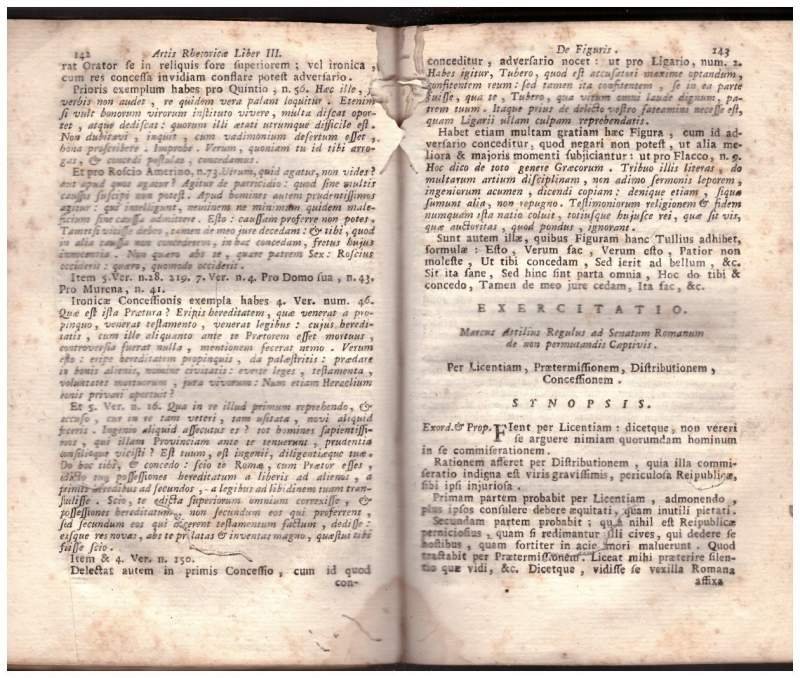 142 Artis Rhetoricæ Liber III.
rat Orator se in reliquis fore superiorem ; vel ironica ,
cum res concessa invidiam conflare potest adversario.
Prioris exemplum habes pro Quintio , n. 56. Hæc ille ,
verbis non audes , re quidem vera palam loquitur. Etenim
si vult bonorum virorum instituto vivere, multa discat opor-
tet , atque dediscat : quorum illi ætati utrumque difficile est.
Non dubitavi , inquit , cum vadimonium desertum esset ,
bona proscribere . Improbe . Verum , quoniam tu id tibi arro-
gas , & concedi postulas , concedamus.
Et pro Roscio Amerino, n.73. Verum, quid agatur, non vides ?
aut apud quos agatur ? Agitur de parricidio : quod sine multis
caussis suscipi non potest. Apud homines autem prudentissimos
agitur : qui intelligunt, neminem ne minimum quidem male-
ficium sine caussa admittere. Esto : caussam proferre non potes.
Tametsi vicisse debeo, tamen de meo jure decedam : & tibi, quod
in alia caussa non concederem, in hac concedam, fretus hujus
innocentia . Non quæro abs te , quare patrem Sex: Roscius
occiderit : quæro , quomodo occiderit .
Item 5. Ver. n.18. 219. 7. Ver. n. 4. Pro Domo sua , n. 43.
Pro Murena, n. 41.
Ironicæ Concessionis exempla habes 4. Ver. num. 46.
Quæ est ista Prætura ? Eripis hereditatem , quæ venerat a pro-
pinquo , venerat testamento , venerat legibus : cujus heredi-
tatis , cum ille aliquanto ante te Prætorem esset mortuus ,
controversia fuerat nulla , mentionem fecerat nemo . Verum
esto : eripe hereditatem propinquis , da palæstritis : prædare
in bonis alienis, nomine civitatis : everte leges , testamenta ,
voluntates mortuorum , jura vivorum : Num etiam Heraclium
bonis privari oportuit ?
Et 5. Ver. n. 16. Qua in re illud primum reprehendo, &
accuso , cur in re tam veteri , tam usitata , novi aliquid
feceris . Ingenio aliquid assecutus es ? tot homines sapientissi-
mos , qui illam Provinciam ante te tenuerunt , prudentia
consilioque vicisti ? Est tuum , est ingenii, diligentiæque tuæ .
Do hoc tibi, & concedo : scio te Romæ , cum Prætor esses ,
edicto tuo possessiones hereditatum a liberis ad alienos , a
primis heredibus ad secundos , a legibus ad libidinem tuam tran-
stulisse . Scio , te edicta superiorum omnium correxisse , &
possessiones hereditatum , non secundum eos qui proferrent ,
sed secundum eos qui dicerent testamentum factum , dedisse :
easque res novas, abs te prolatas & inventas magno, quæstui tibi
fuisse scio .
Item & 4. Ver. n. 150.
Delectat autem in primis Concessio , cum id quod
con-
De Figuris . 143
conceditur , adversario nocet : ut pro Ligario, num. 2.
Habes igitur, Tubero, quod est accusatori maxime optandum,
confitentem reum : sed tamen ita confitentem , se in ea parte
fuisse, qua te , Tubero, qua virum omni laude dignum, pa-
trem tuum . Itaque prius de delicto vestro fateamini necesse est,
quam Ligarii ullam culpam reprehenderis .
Habet etiam multam gratiam hæc Figura , cum id ad-
versario conceditur, quod negari non potest , ut alia me-
liora & majoris momenti subjiciantur : ut pro Flacco, n. 9.
Hoc dico de toto genere Græcorum . Tribuo illis literas , do
multarum artium disciplinam , non adimo sermonis leporem ,
ingeniorum acumen , dicendi copiam : denique etiam , siqua
sumunt alia, non repugno . Testimoniorum religionem & fidem
numquam ista natio coluit , totiusque hujusce rei , quæ sit vis,
quæ auctoritas , quod pondus , ignorant .
Sunt autem illæ, quibus Figuram hanc Tullius adhibet,
formulæ : Esto , Verum fac , Verum esto , Patior non
moleste , Ut tibi concedam , Sed ierit ad bellum , &c.
Sit ita sane , Sed hinc sint parta omnia , Hoc do tibi &
concedo , Tamen de meo jure cedam, Ita fac , &c.
EXERCITATIO.
Marcus Attilius Regulus ad Senatum Romanum
de non permutandis Captivis .
Per Licentiam, Prætermissionem, Distributionem ,
Concessionem .
SYNOPSIS.
Exord.& Prop. FIent per Licentiam : dicetque, non vereri
se arguere nimiam quorumdam hominum
in se commiserationem .
Rationem afferet per Distributionem , quia illa commi-
seratio indigna est viris gravissimis, periculosa Reipublicæ,
sibi ipsi injuriosa .
Primam partem probabit per Licentiam , admonendo ,
plus ipsos consulere debere æquitati , quam inutili pietati .
Secundam partem probabit ; quia nihil est Reipublicæ
perniciosius , quam si redimantur illi cives, qui dedere se
hostibus , quam fortiter in acie mori maluerunt . Quod
tractabit per Prætermissionem . Liceat mihi præterire silen-
tio quæ vidi, &c. Dicetque , vidisse se vexilla Romana
affixa